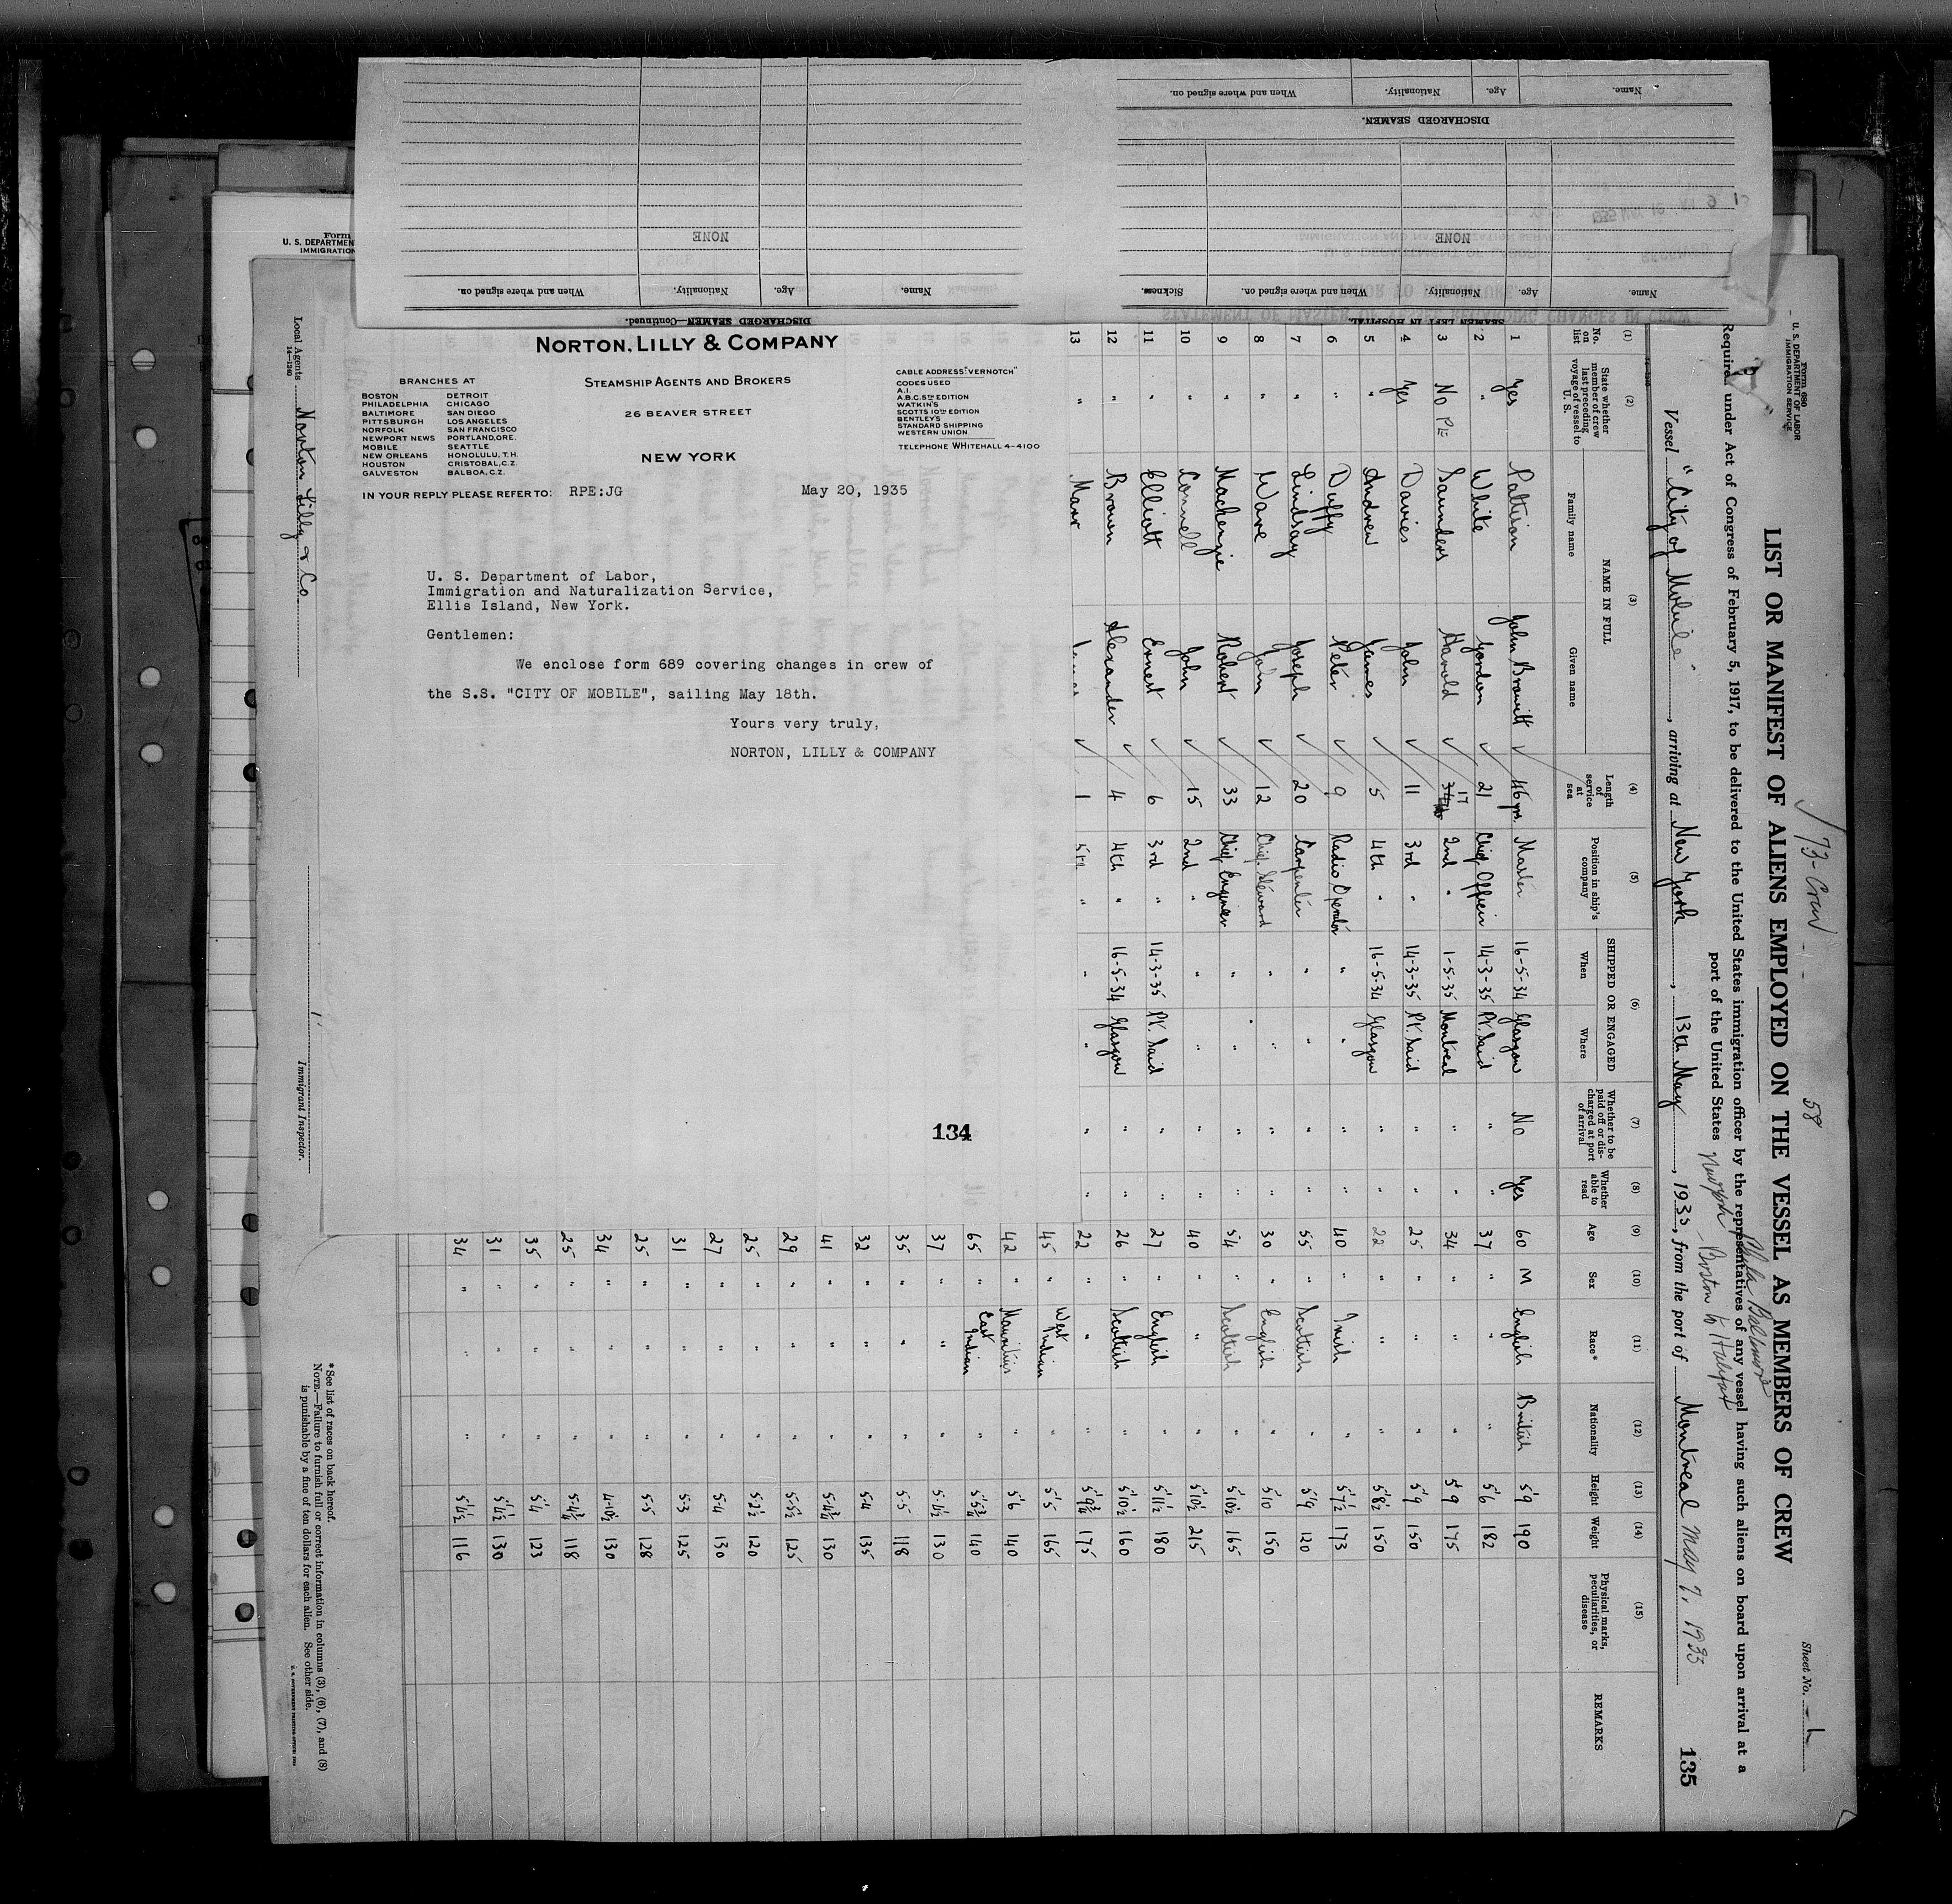 Name. Age. Nationality. When and where signed on.
DISCHARGED SEAMEN.
NONE
NONE
Name. Age. Nationality. When and where signed on. Sickness.
Name. Age. Nationality. When and where signed on.
SEAMEN LEFT IN HOSPITAL.
DISCHARGED SEAMEN—Continued.
Form
U. S. DEPARTMENT
IMMIGRATION
NORTON, LILLY & COMPANY
STEAMSHIP AGENTS AND BROKERS
26 BEAVER STREET
NEW YORK
BRANCHES AT
BOSTON DETROIT
PHILADELPHIA CHICAGO
BALTIMORE SAN DIEGO
PITTSBURGH LOS ANGELES
NORFOLK SAN FRANCISCO
NEWPORT NEWS PORTLAND, ORE.
MOBILE SEATTLE
NEW ORLEANS HONOLULU, T.H.
HOUSTON CRISTOBAL, C.Z.
GALVESTON BALBOA, C.Z.
CABLE ADDRESS "VERNOTCH"
CODES USED
A.I.
A.B.C. 5TH EDITION
WATKIN'S
SCOTTS 10TH EDITION
BENTLEY'S
STANDARD SHIPPING
WESTERN UNION
TELEPHONE WHITEHALL 4-4100
IN YOUR REPLY PLEASE REFER TO: RPE:JG
May 20, 1935
U. S. Department of Labor,
Immigration and Naturalization Service,
Ellis Island, New York.
Gentlemen:
We enclose form 689 covering changes in crew of
the S.S. "CITY OF MOBILE", sailing May 18th.
Yours very truly,
NORTON, LILLY & COMPANY
134
Form 680
U. S. DEPARTMENT OF LABOR
IMMIGRATION SERVICE
73-Crew
58
Sheet No. 1
LIST OR MANIFEST OF ALIENS EMPLOYED ON THE VESSEL AS MEMBERS OF CREW
Required under Act of Congress of February 5, 1917, to be delivered to the United States immigration officer by the representatives of any vessel having such aliens on board upon arrival at a
port of the United States
Phila Baltimore
Boston to Halifax
Vessel "City of Mobile", arriving at New York, 13th May, 1935, from the port of Montreal May 7, 1935
135
(1) No. on list
(2) State whether member of crew last preceding voyage of vessel to U. S.
(3) NAME IN FULL Family name Given name
(4) Length of service at sea
(5) Position in ship's company
(6) SHIPPED OR ENGAGED When Where
(7) Whether to be paid off or discharged at port of arrival
(8) Whether able to read
(9) Age
(10) Sex
(11) Race*
(12) Nationality
(13) Height
(14) Weight
(15) Physical marks, peculiarities, or disease
REMARKS
1 Yes John 46 yrs. Master 16-5-34 Glasgow No Yes 60 M English British 5'9 190
2 " White Gordon 21 Chief Officer 14-3-35 Pt. Said " " 37 " " " 5'6 182
3 No Saunders Harold 17 2nd " 1-5-35 Montreal " " 34 " " " 5'9 175
4 Yes Davies John 11 3rd " 14-3-35 Pt. Said " " 25 " " " 5'9 150
5 " Andrew James 5 4th " 16-5-34 Glasgow " " 22 " " " 5'8½ 150
6 " Duffy Peter 9 Radio Operator " " " " 40 " Irish " 5'7½ 173
7 " Lindsay Joseph 20 Carpenter " " " " 55 " Scottish " 5'9 120
8 " Ware John 12 Chief Steward " " " " 30 " English " 5'10 150
9 " Mackenzie Robert 33 Chief Engineer " " " " 54 " Scottish " 5'10½ 165
10 " Connell John 15 2nd " " " " " 40 " " " 5'10½ 215
11 " Elliott Ernest 6 3rd " 14-3-35 Pt. Said " " 27 " English " 5'11½ 180
12 " Brown Alexander 4 4th " 16-5-34 Glasgow " " 26 " Scottish " 5'10½ 160
13 " Marr 1 5th " " " " " 22 " " " 5'9¾ 175
45 " West Indian " 5'5 165
42 " Mauritius " 5'6 140
65 " East Indian " 5'5¾ 140
37 " " " 5-4½ 130
35 " " " 5-5 118
32 " " " 5-4 135
41 " " " 5-4¾ 130
29 " " " 5-5½ 125
25 " " " 5-2½ 120
27 " " " 5-4 130
31 " " " 5-3 125
25 " " " 5-5 128
34 " " " 4-10½ 130
25 " " " 5-4¾ 118
35 " " " 5'4 123
31 " " " 5'4½ 130
34 " " " 5'4½ 116
*See list of races on back hereof.
NOTE.—Failure to furnish full or correct information in columns (3), (6), (7), and (8)
is punishable by a fine of ten dollars for each alien. See other side.
Local Agents Norton Lilly & Co
14—1240
Immigrant Inspector.